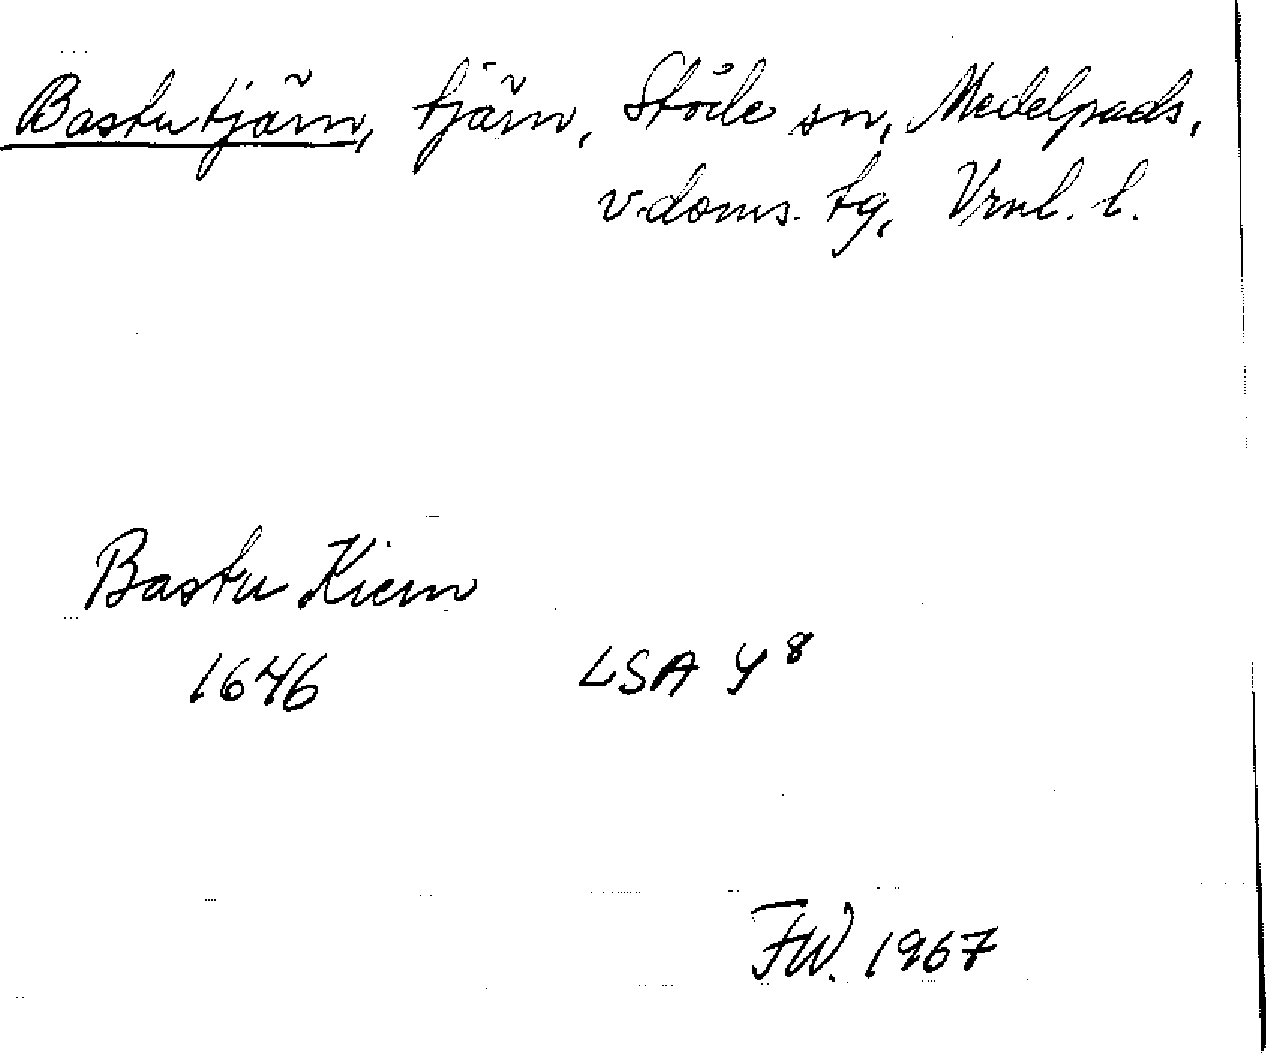 Bastutjärn, tjärn, Stöde sn, Medelpads.
v. doms. tg, Vrnl. l.
Bastu Kiern
1646 LSA Y 8
FW. 1967